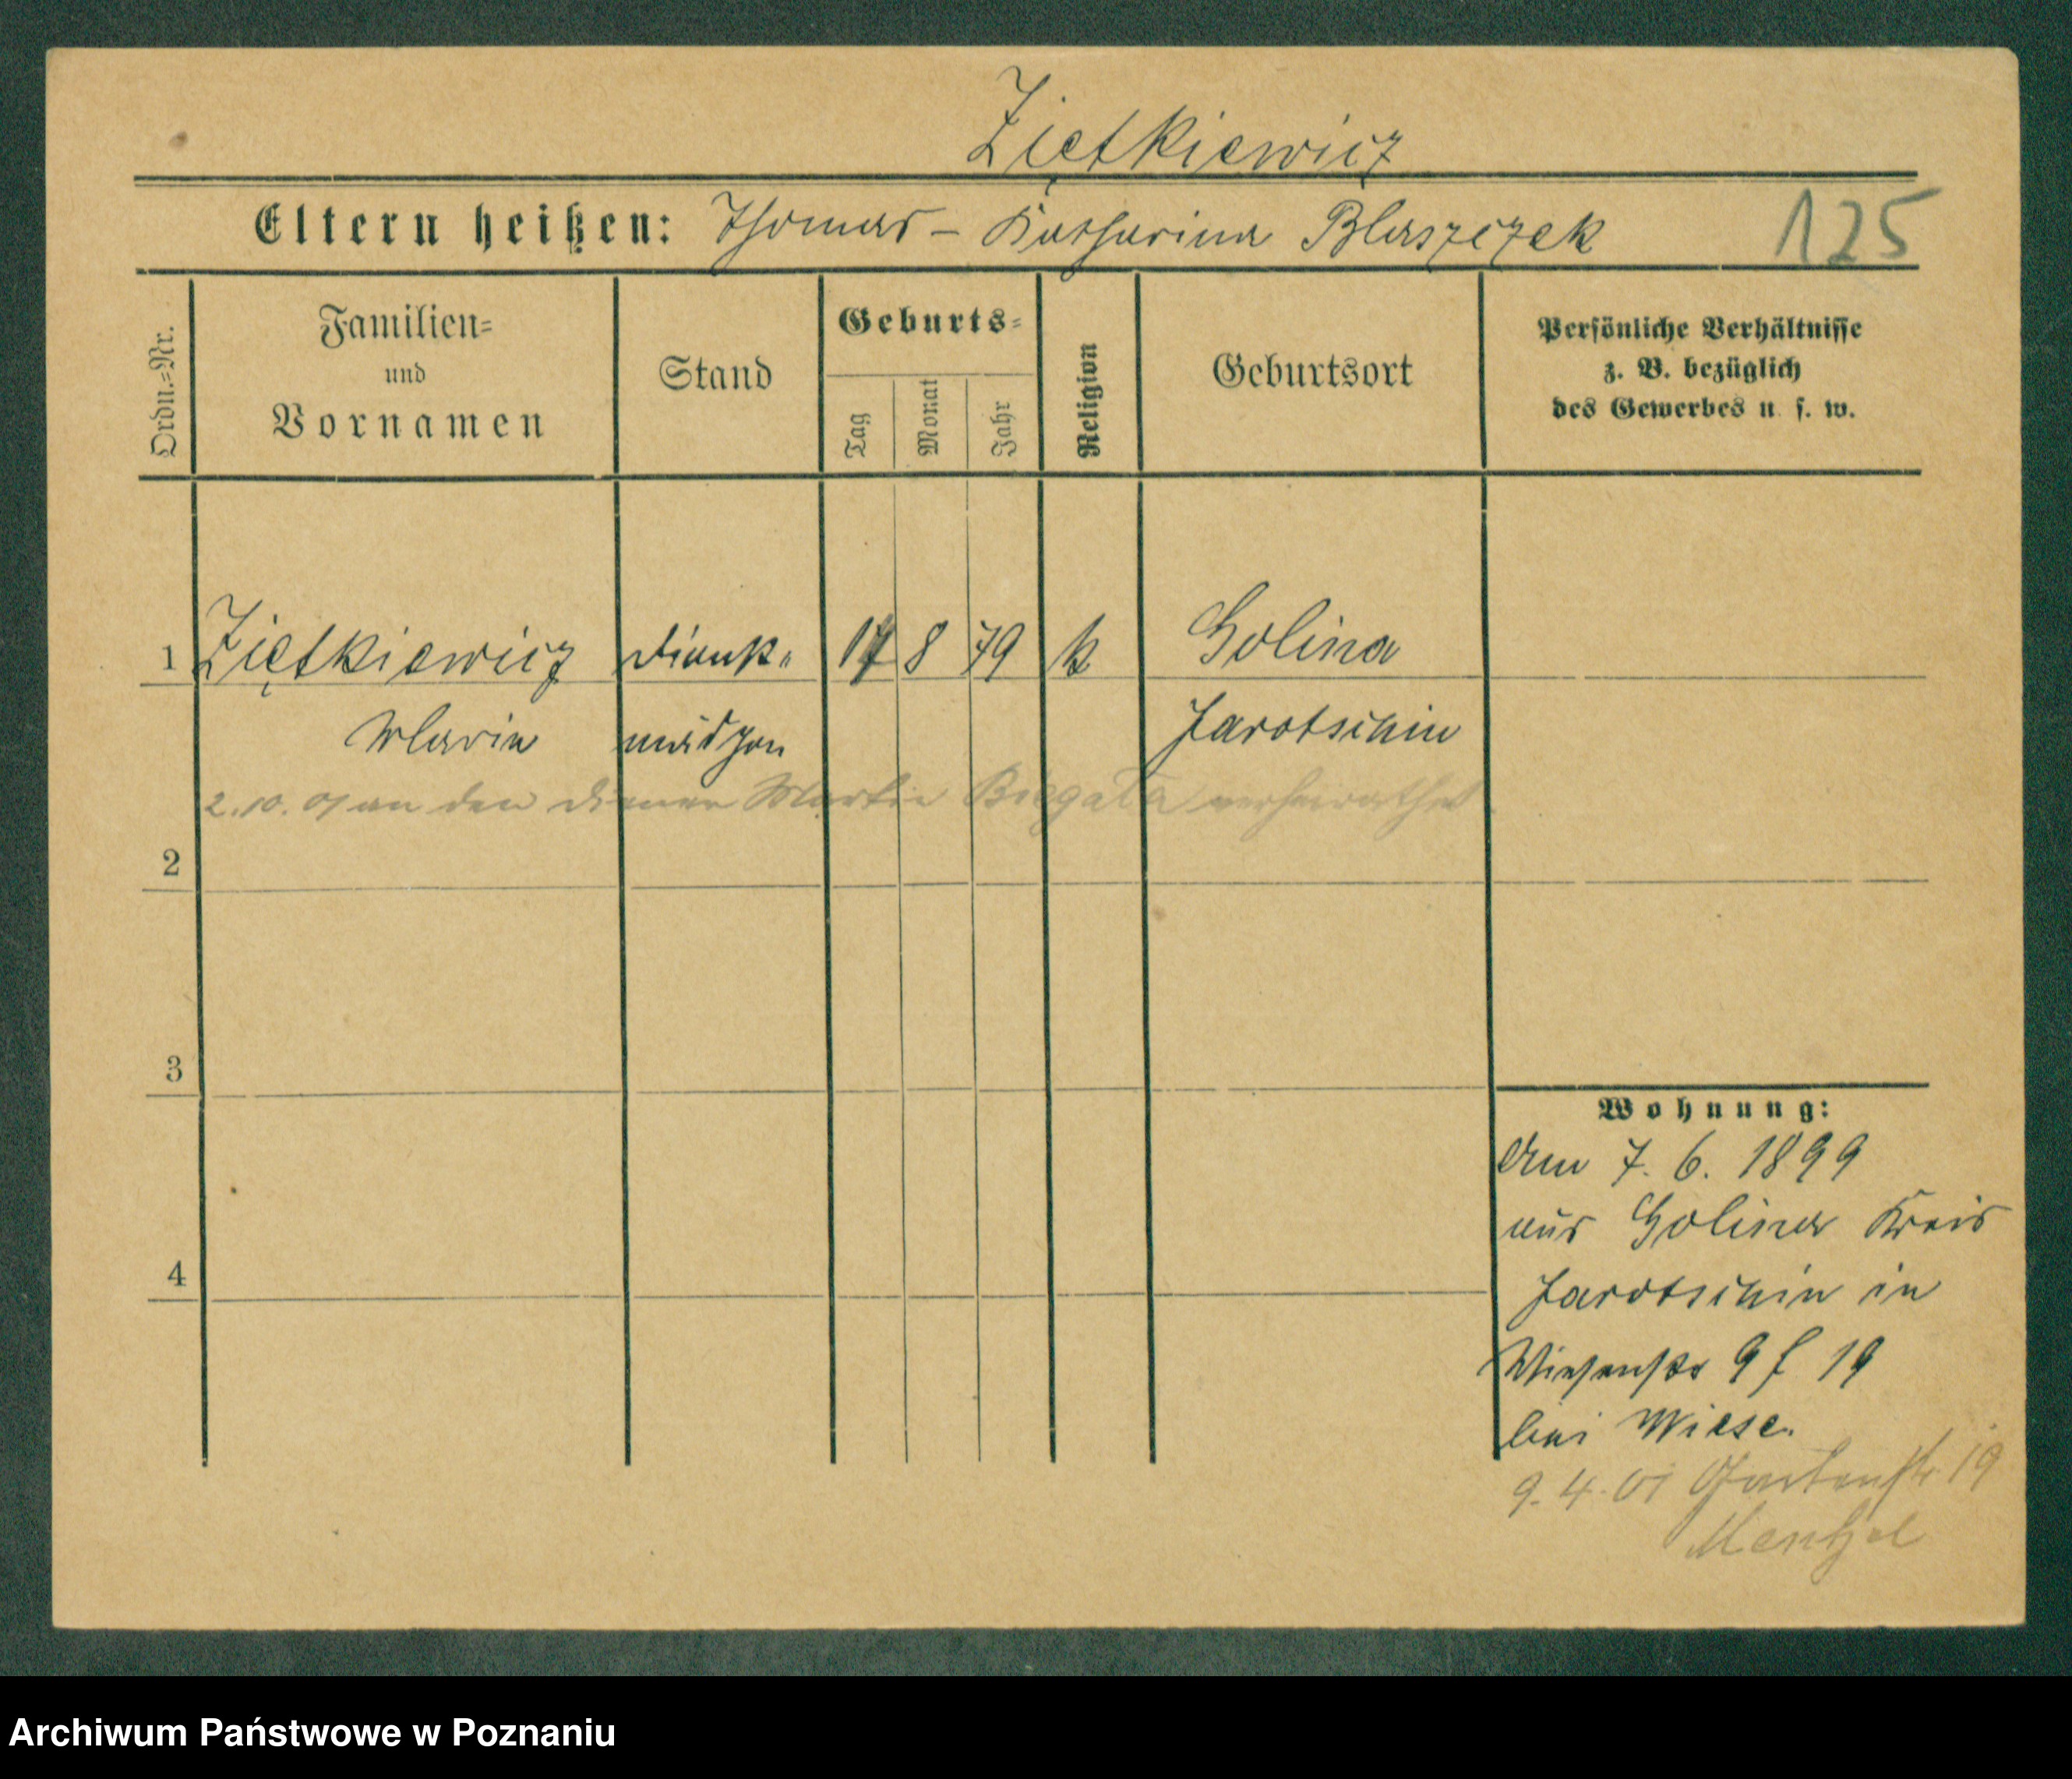 Ziętkiewicz
Eltern heißen: Thomas – Katharina Blaszczek 125
Ordn.=Nr.
Familien=
und
Vornamen
Stand
Geburts=
Tag
Monat
Jahr
Religion
Geburtsort
Persönliche Verhältnisse
z. B. bezüglich
des Gewerbes u. s. w.
1 Ziętkiewicz Dienst= 8 79 k Golina
Marie mädchen Jarotschin
2.10.01 an den Diener Martin Biegała verheirathet
2
3
4
Wohnung:
Am 7. 6. 1899
aus Golina Kreis
Jarotschin in
Wiesenstr 9 f 19
bei Wiese.
9.4.01 Gartenstr. 19
Mentzel
Archiwum Państwowe w Poznaniu